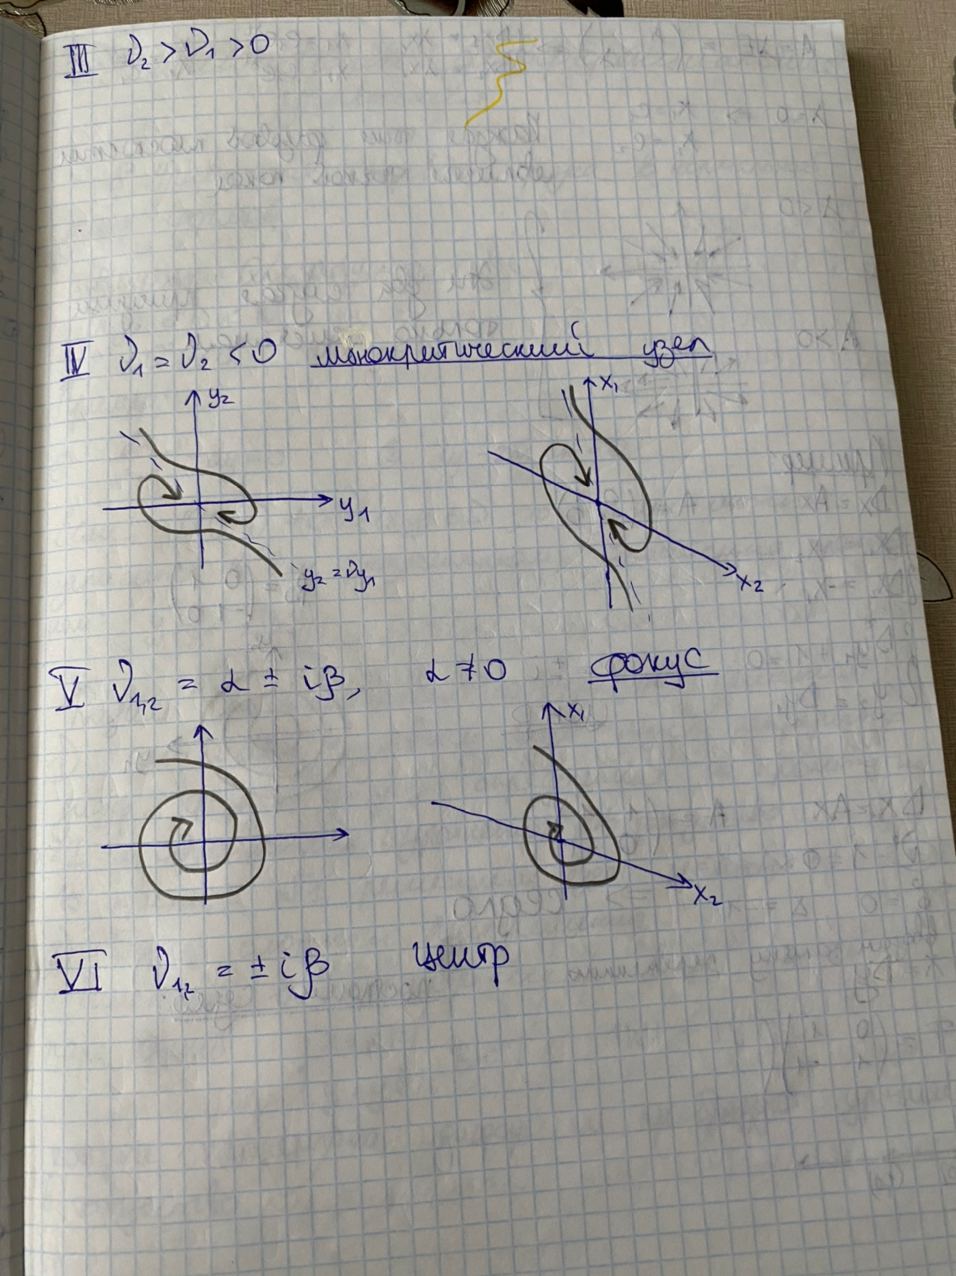 III ν₂ > ν₁ > 0
IV ν₁ = ν₂ < 0 монокритический узел
y₂
x₁
y₁
y₂ = νy₁
x₂
V ν₁,₂ = α ± iβ, α ≠ 0 фокус
x₁
x₂
VI ν₁,₂ = ± iβ центр